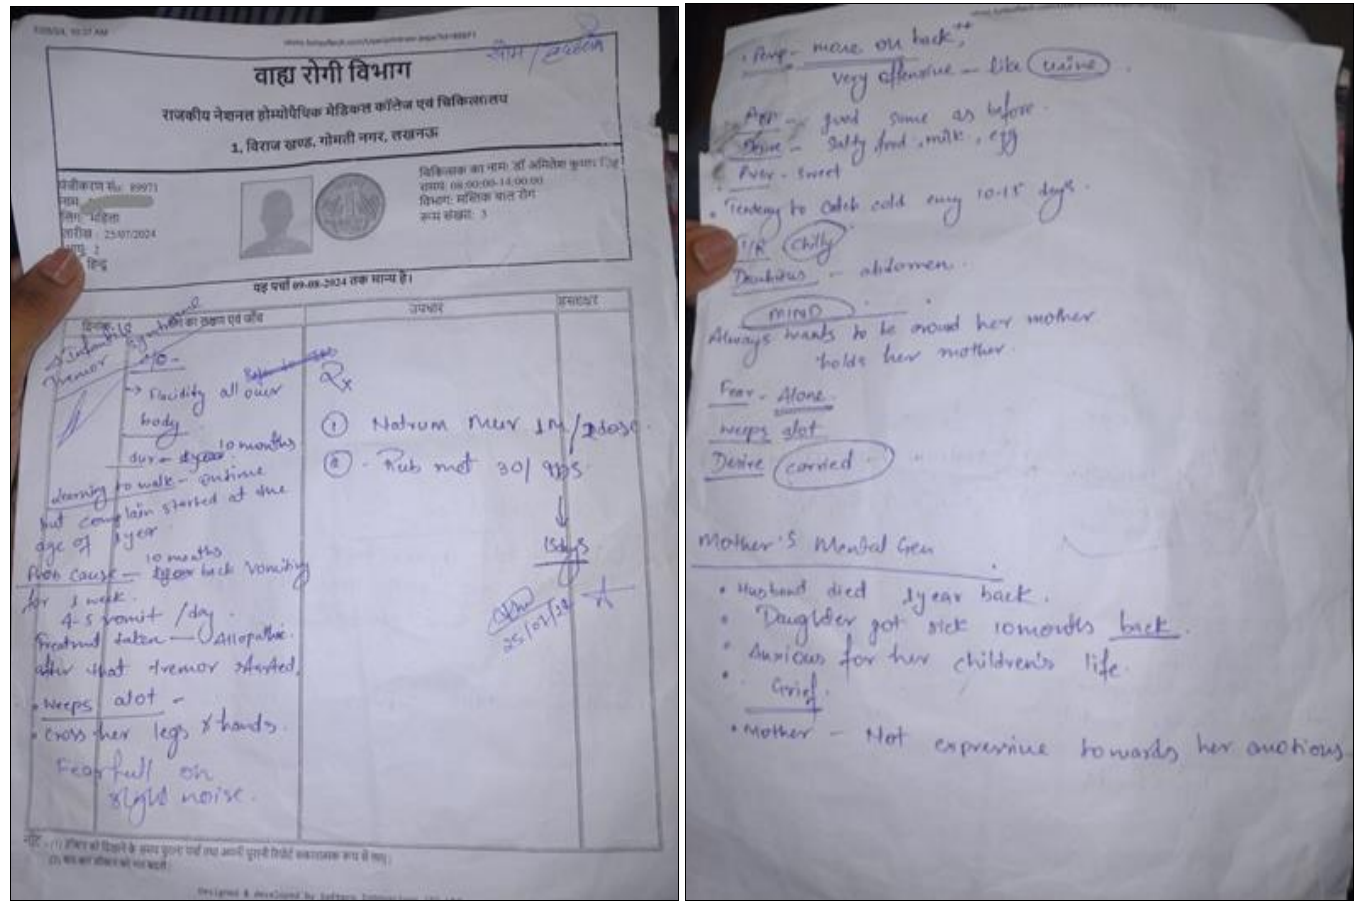 सोम /
वाह्य रोगी विभाग
राजकीय नेशनल होम्योपैथिक मेडिकल कॉलेज एवं चिकित्सालय
1, विराज खण्ड, गोमती नगर, लखनऊ
पंजीकरण सं०: 89971
नाम
लिंग: महिला
तारीख : 25/07/2024
आयु: 2
हिन्दू
चिकित्सक का नाम: डॉ अमितेश कुमार
समय: 08:00:00-14:00:00
विभाग: मस्तिक बाल रोग
रूम संख्या: 3
यह पर्चा 09-08-2024 तक मान्य है।
दिनांक
का लक्षण एवं जाँच
उपचार
हस्ताक्षर
Infantile
Tremor Syndrome
C/O -
→ Flacidity all over
body
dur - 10 months
Learning to walk - ontime
but complain started at the
age of 1 year
10 months
Prob cause - back vomiting
for 1 week.
4-5 vomit /day.
Treatment taken - Allopathic.
after that tremor started.
• Weeps alot -
• Cross her legs & hands.
Fearfull on
slight noise.
Rx
① Natrum Mur 1M / dose.
② - Rub met 30/
↓
15days
25/07/24
नोट - (1)
(2)
• Persp - more on back++,
very offensive - like urine.
App - good same as before.
Desire - salty food, milk, egg
Aver - sweet
• Tendency to catch cold every 10-15 days.
T/R Chilly
Decubitus - abdomen.
MIND
Always wants to be around her mother
holds her mother.
Fear - Alone.
Weeps alot
Desire carried -
Mother's Mental Gen
• Husband died 1year back.
• Daughter got sick 10months back.
• Anxious for her children's life.
• Grief.
• Mother - Not expressive towards her emotions